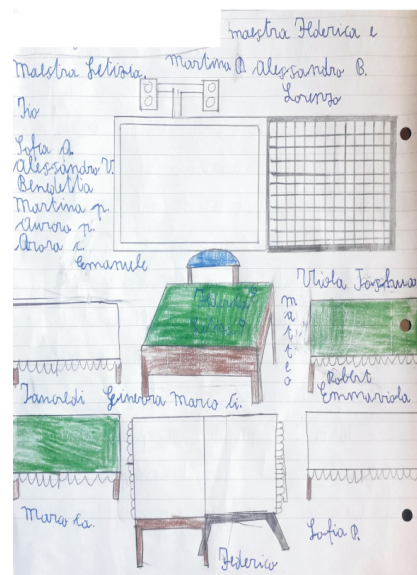 maestra Federica e
Maestra Letizia. Martina D. Alessandro B.
Lorenzo
Io
Sofia D.
Alessandro V.
Benedetta
Martina p.
Aurora p.
Aurora c.
Emanuele
Viola Joshua
matteo
Robert
Tancredi Ginevra Marco Ci. Emmaviola
Marco Ca.
Sofia P.
Federico